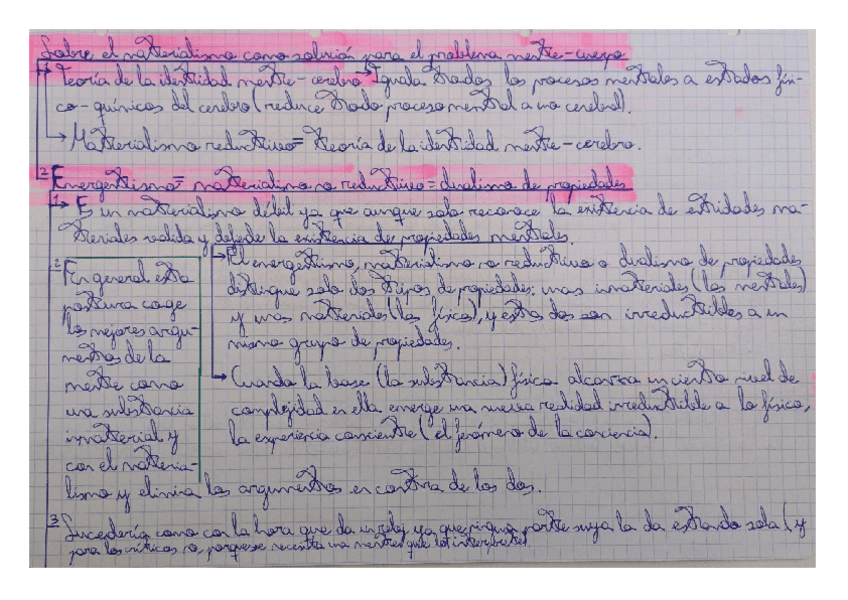 Sobre el materialismo como solución para el problema mente-cuerpo
1 Teoría de la identidad mente-cerebro → Iguala todos los procesos mentales a estados físi-
co-químicos del cerebro (reduce todo proceso mental a uno cerebral).
→ Materialismo reductivo = teoría de la identidad mente-cerebro.
2 Emergentismo = materialismo no reductivo = dualismo de propiedades
1 → Es un materialismo débil ya que aunque solo reconoce la existencia de entidades ma-
teriales valida y defiende la existencia de propiedades mentales.
→ El emergentismo, materialismo no reductivo o dualismo de propiedades
distingue solo dos tipos de propiedades: unas inmateriales (las mentales)
y unas materiales (las físicas), y estas dos son irreductibles a un
mismo grupo de propiedades.
→ Cuando la base (la substancia) física alcanza un cierto nivel de
complejidad en ella emerge una nueva realidad irreductible a lo físico,
la experiencia consciente (el fenómeno de la conciencia).
2 En general esta
postura coge
los mejores argu-
mentos de la
mente como
una substancia
inmaterial y
con el materia-
lismo y elimina los argumentos en contra de los dos.
3 Sucedería como con la hora que da un reloj ya que ninguna parte suya la da estando sola (y
para los críticos no, porque se necesita una mente que lo interprete)